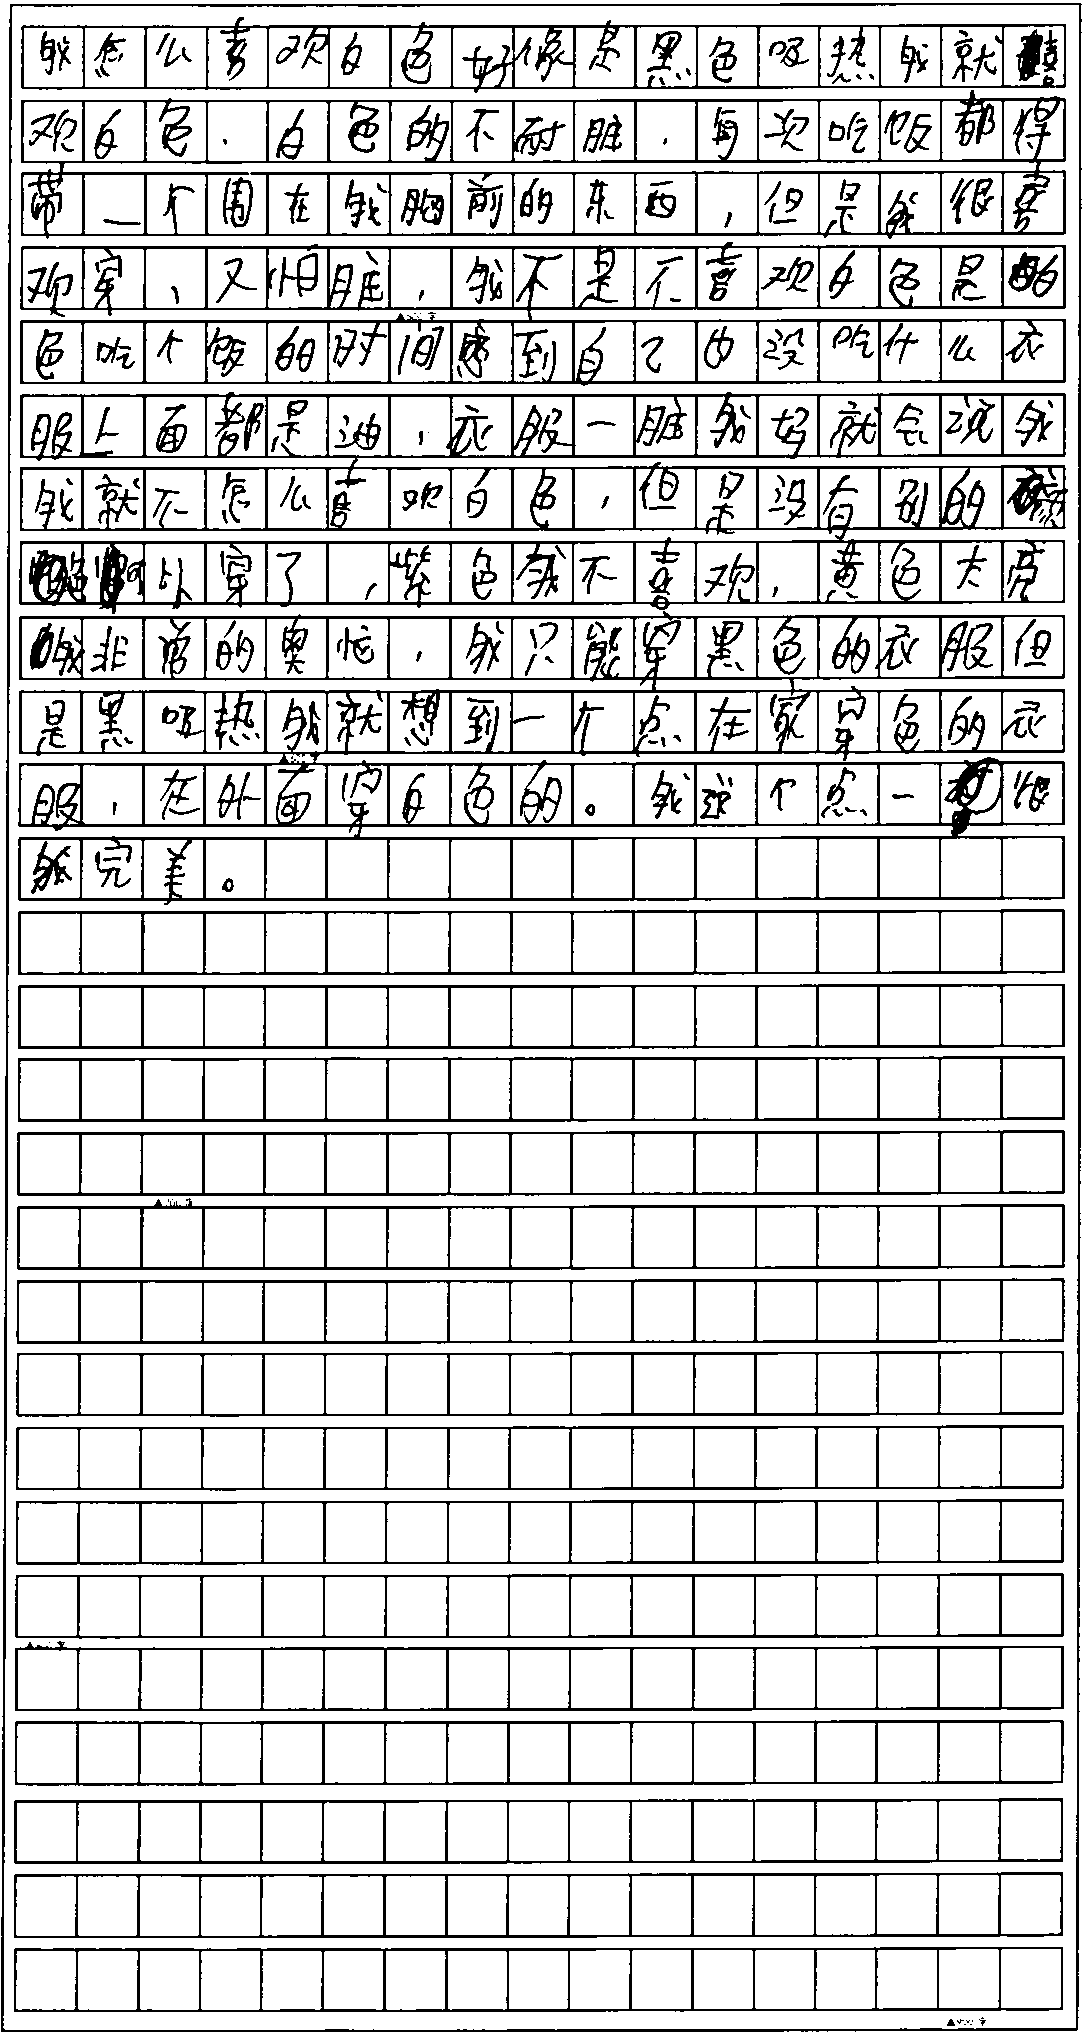 我怎么喜欢白色好像是黑色吸热我就喜
欢白色.白色的不耐脏.每次吃饭都得
带一个围在我胸前的东西,但是我很喜
欢穿、又怕脏,我不是不喜欢白色是白
色吃个饭的时间感到自己也没吃什么衣
服上面都是油,衣服一脏我妈就会说我
我就不怎么喜欢白色,但是没有别的
以穿了,紫色我不喜欢,黄色太亮
我非常的奥恼,我只能穿黑色的衣服但
是黑吸热我就想到一个点在家穿色的衣
服,在外面穿白色的。我这个点一很
我完美。